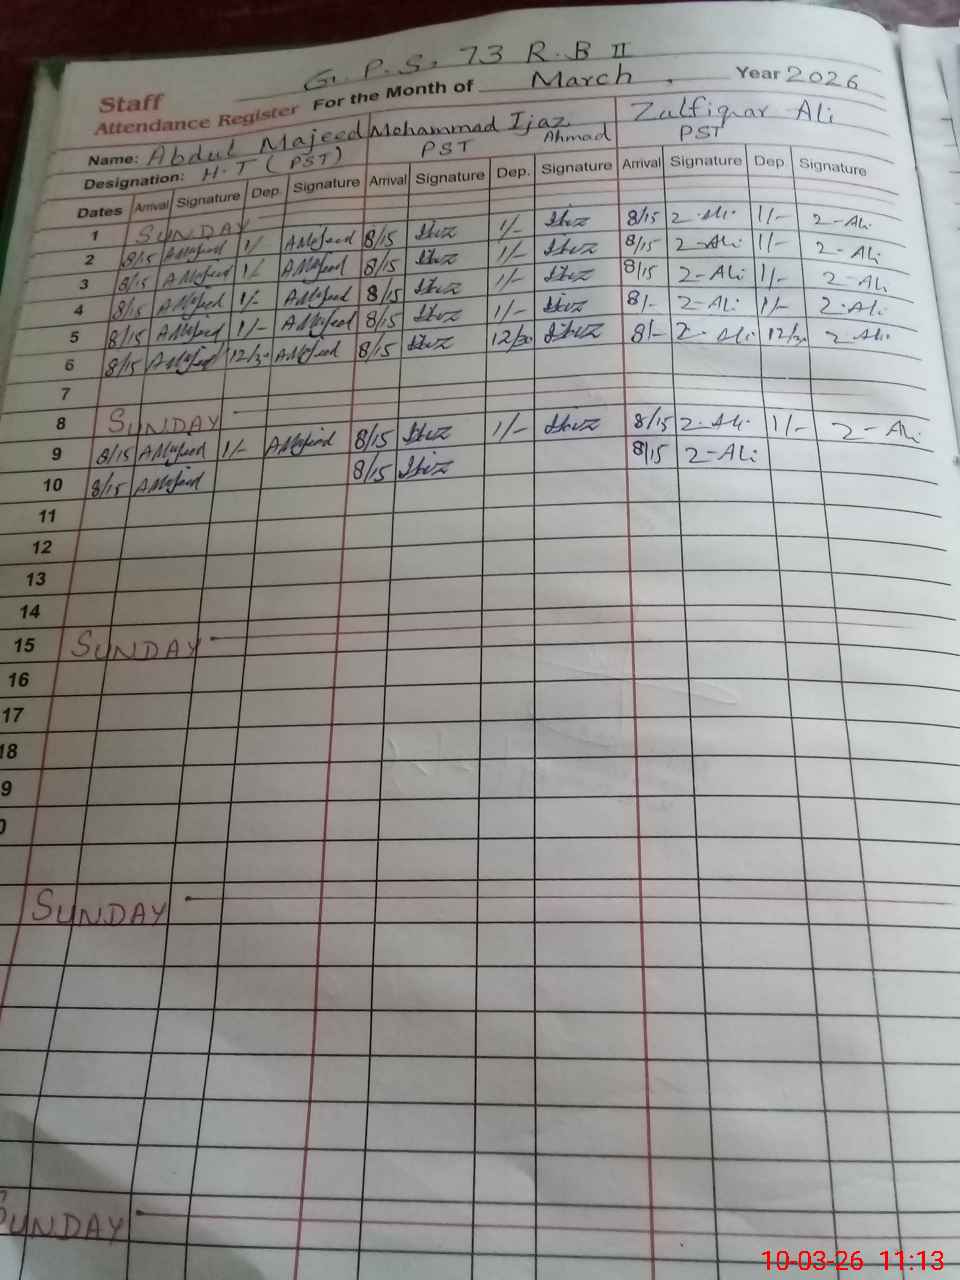 G. P. S. 73 R.B II
Staff
Attendance Register For the Month of March. Year 2026
Name: Abdul Majeed Mohammad Ijaz Ahmad Zulfiqar Ali
Designation: H.T (PST) PST PST
Dates Arrival Signature Dep. Signature Arrival Signature Dep. Signature Arrival Signature Dep. Signature
1 SUNDAY
2 8/15 AMajeed 1/- AMajeed 8/15 1/- 8/15 Z-Ali 1/- Z-Ali
3 8/15 AMajeed 1/- AMajeed 8/15 1/- 8/15 Z-Ali 1/- Z-Ali
4 8/15 AMajeed 1/- AMajeed 8/15 1/- 8/15 Z-Ali 1/- Z-Ali
5 8/15 AMajeed 1/- AMajeed 8/15 1/- 8/- Z-Ali 1/- Z-Ali
6 8/15 AMajeed 12/30 AMajeed 8/15 12/30 8/- Z-Ali 12/30 Z-Ali
7
8 SUNDAY
9 8/15 AMajeed 1/- AMajeed 8/15 1/- 8/15 Z-Ali 1/- Z-Ali
10 8/15 AMajeed 8/15 8/15 Z-Ali
11
12
13
14
15 SUNDAY
16
17
18
9
SUNDAY
SUNDAY
10-03-26 11:13